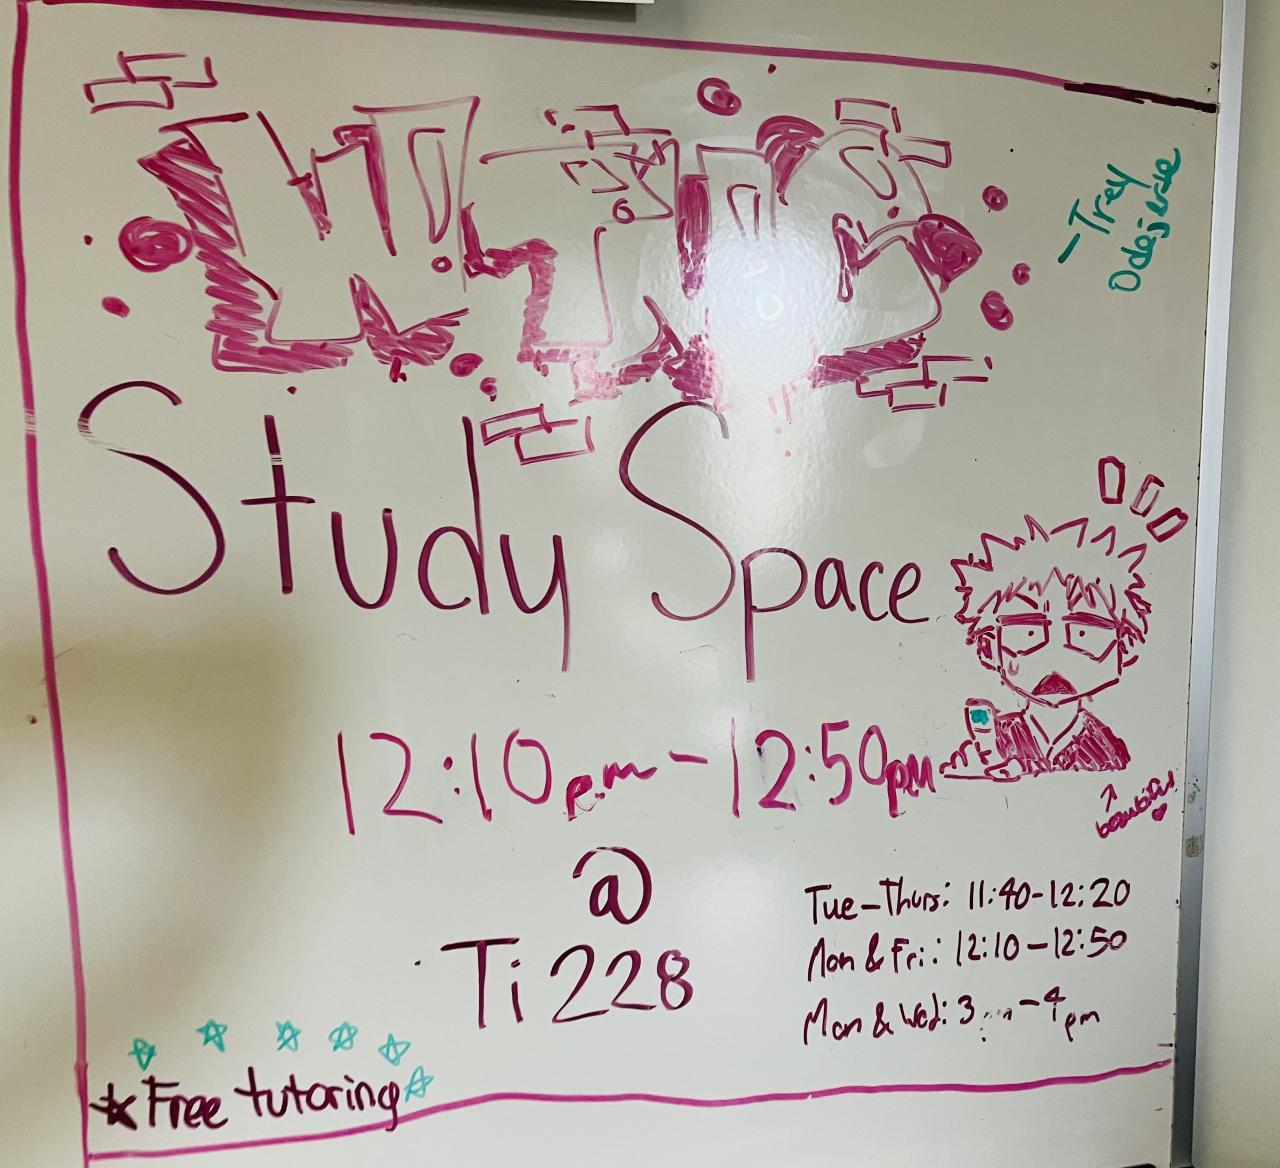 Study Space
12:10 p.m - 12:50pm
@
Ti 228
Tue-Thurs: 11:40-12:20
Mon & Fri: 12:10-12:50
Mon & Wed: 3 - 4 pm
Free tutoring
-Trey